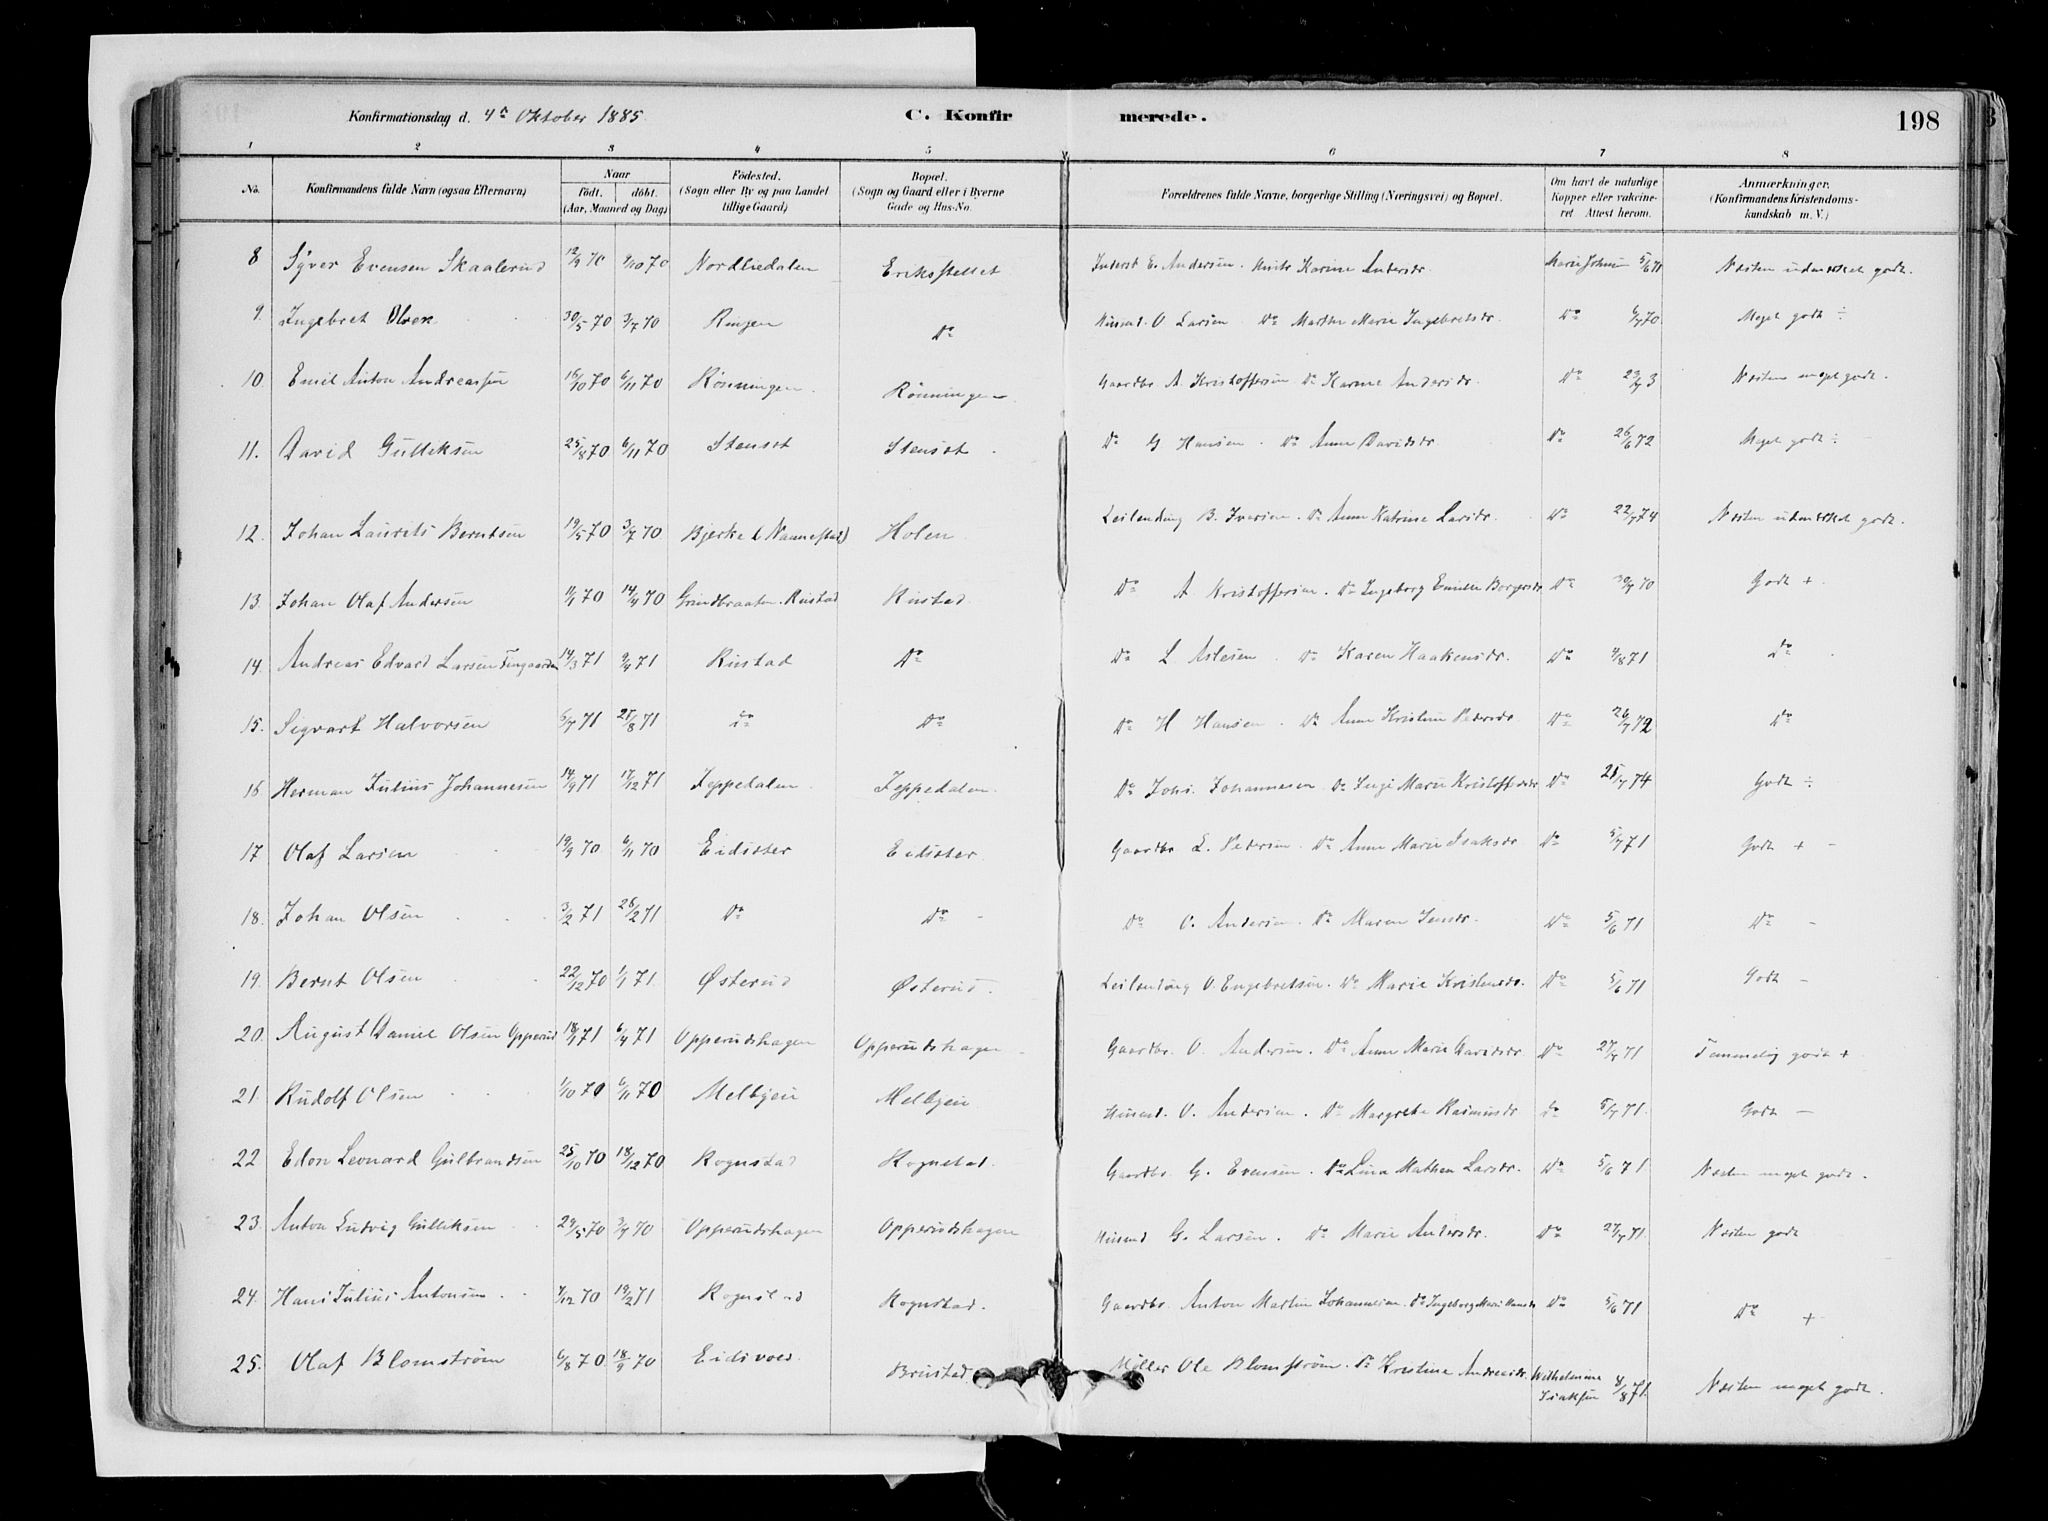 Konfirmationsdag d. 4de Oktober 1885 C. Konfir merede. 198
1 2 3 4 5 6 7 8
No. Konfirmandens fulde Navn (ogsaa Efternavn) Naar født. døbt. (Aar, Maaned og Dag) Fødested. (Sogn eller By og paa Landet tillige Gaard) Bopæl. (Sogn og Gaard eller i Byerne Gade og Hus-No. Forældrenes fulde Navne, borgerlige Stilling (Næringsvei) og Bopæl. Om havt de naturlige Kopper eller vakcineret Attest herom. Anmærkninger. (Konfirmandens Kristendomskundskab m. V.)
8 Syver Evensen Skaalerud 12/9 70 9/10 70 Nordliedalen Eriksstellet Inderst E. Andersen. Karine Andersdr. Marie Johnsen 5/6 71 Næsten udmærket godt.
9. Ingebret Olsen 30/5 70 3/7 70 Ringen Do Husmd. O Larsen Do Marthe Marie Ingebretsdr. Do 6/7 70 Meget godt ÷
10. Emil Anton Andreassen 16/10 70 6/11 70 Rønningen Rønningen Gaardbr. A Kristoffersen Do Karine Andersdr. Do 23/7 73 Næsten meget godt.
11. David Gulleksen 25/8 70 6/11 70 Stenset Stenset Do G Hansen. Do Anne Davidsdr Do 26/6 72 Meget godt ÷
12. Johan Laurits Berntsen 19/5 70 3/7 70 Bjerke (Nannestad) Holen Leilending B. Iversen. Do Anne Katrine Larsdr. Do 22/7 74 Næsten udmærket godt.
13. Johan Olaf Andersen 1/1 70 14/4 70 Grindbraaten. Rustad Rustad Do A Kristoffersen. Do Ingeborg Emilie Borgersdr Do 30/7 70 Godt +
14. Andreas Edvard Larsen 14/3 71 9/4 71 Rustad Do Do L Aslesen. Do Karen Haakensdr. Do 4/8 71 Do
15. Sigvart Halvorsen 6/7 71 27/8 71 do Do Do H Hansen. Do Anne Kristine Pedersdr Do 26/7 72 Do
16 Herman Julius Johannesen 14/9 71 17/12 71 Jeppedalen Jeppedalen. Do Johs. Johannesen Do Inge Marie Kristoffersdr Do 25/7 74 Godt ÷
17 Olaf Larsen 19/9 70 6/11 70 Eidsæter Eidsæter Gaardbr L. Pedersen. Do Anne Marie Isaksdr Do 5/7 71 Godt + -
18. Johan Olsen 3/2 71 26/2 71 Do Do - Do O. Andersen. Do Maren Jensdr. Do 5/6 71 Do -
19. Bernt Olsen 22/12 70 1/1 71 Østerud Østerud. Leilending O. Engebretsen. Do Marie Kristensdr. Do 5/6 71 Godt -
20. August Daniel Olsen Opperud 18/1 71 6/4 71 Opperudshagen Opperudshagen Gaardbr. O. Andersen. Do Anne Marie Davidsdr Do 27/7 71 Temmelig godt +
21. Rudolf Olsen 1/10 70 6/11 70 Melbyeie Melbyeie Husmd. O. Andersen. Do Margrete Rasmusdr do 5/7 71. Godt -
22 Edon Leonard Gulbrandsen 25/10 70 18/12 70 Rognstad Rognstad. Gaardbr. G. Evensen. Do Lina Mathea Larsdr. Do 5/6 71 Næsten meget godt.
23 Anton Ludvig Gulleksen 29/5 70 3/7 70 Opperudshagen Opperudshagen Husmd G. Larsen. Do Marie Andersdr. Do 27/7 71 Næsten godt
24. Hans Julius Antonsen 7/12 70 19/2 71 Rognstad Rognstad. Gaardbr. Anton Martin Johannesen. Do Ingeborg Marie Hansdr Do 5/6 71 Do +
25. Olaf Blomstrøm 6/8 70 18/9 70 Eidsvold Brustad Møller Ole Blomstrøm. Do Kristine Andreasdr. Wilhelmine Isaksen 8/8 71. Næsten meget godt.